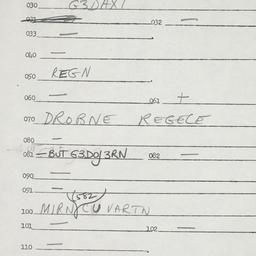 030 G3DAXI
031 032 —
033 —
040 —
050 REGN
060 — 061 +
070 DRORNE REGELE
080 —
081 = BUT G3DO/3RN 082 —
090 —
091 — (582)
100 MIRN CU VARTN
101 — 102 —
110 —